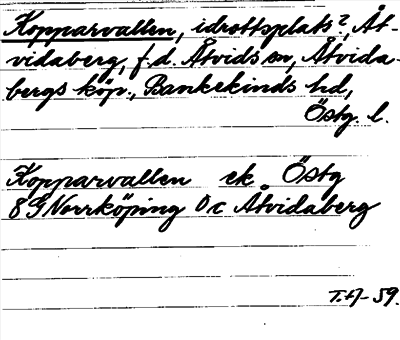 Kopparvallen, idrottsplats?, Åt-
vidaberg, f.d. Åtvids sn, Åtvida-
bergs köp., Bankekinds hd,
Östg. l.
Kopparvallen ek Östg
8 G Norrköping 0c Åtvidaberg
T.H-59.